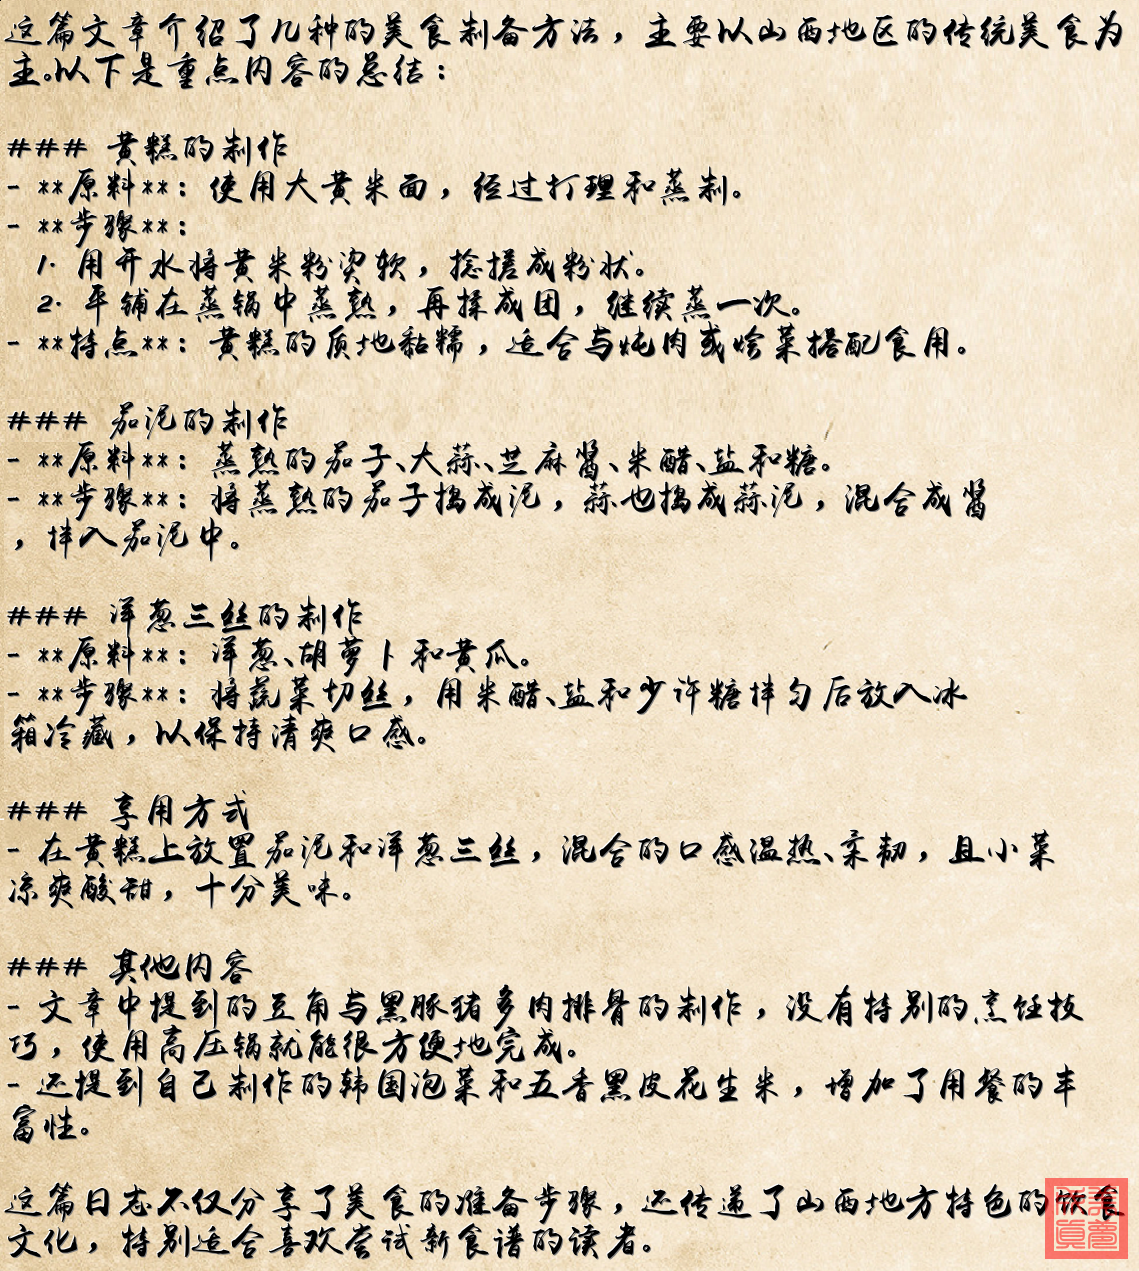 这篇文章介绍了几种的美食制备方法，主要以山西地区的传统美食为
主。以下是重点内容的总结：
### 黄糕的制作
- **原料**：使用大黄米面，经过打理和蒸制。
- **步骤**：
1. 用开水将黄米粉烫软，捻搓成粉状。
2. 平铺在蒸锅中蒸熟，再揉成团，继续蒸一次。
- **特点**：黄糕的质地黏糯，适合与炖肉或烩菜搭配食用。
### 茄泥的制作
- **原料**：蒸熟的茄子、大蒜、芝麻酱、米醋、盐和糖。
- **步骤**：将蒸熟的茄子捣成泥，蒜也捣成蒜泥，混合成酱
，拌入茄泥中。
### 洋葱三丝的制作
- **原料**：洋葱、胡萝卜和黄瓜。
- **步骤**：将蔬菜切丝，用米醋、盐和少许糖拌匀后放入冰
箱冷藏，以保持清爽口感。
### 享用方式
- 在黄糕上放置茄泥和洋葱三丝，混合的口感温热、柔韧，且小菜
凉爽酸甜，十分美味。
### 其他内容
- 文章中提到的豆角与黑豚猪多肉排骨的制作，没有特别的烹饪技
巧，使用高压锅就能很方便地完成。
- 还提到自己制作的韩国泡菜和五香黑皮花生米，增加了用餐的丰
富性。
这篇日志不仅分享了美食的准备步骤，还传递了山西地方特色的饮食
文化，特别适合喜欢尝试新食谱的读者。